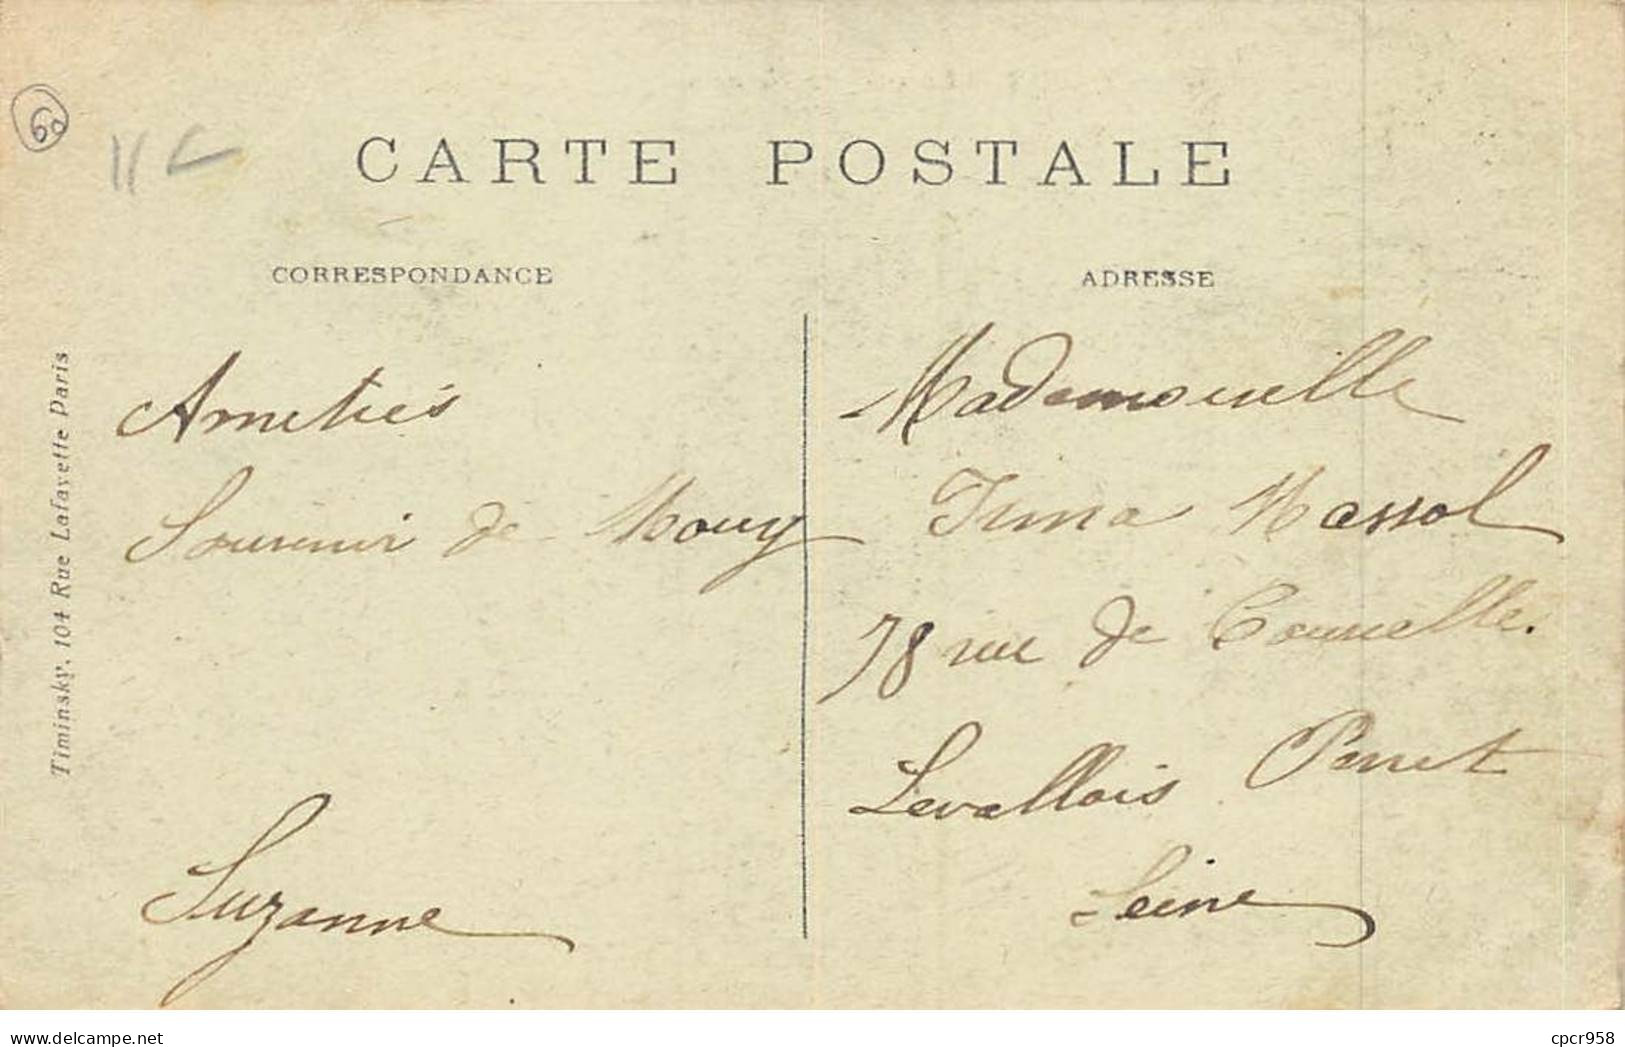 60
CARTE POSTALE
CORRESPONDANCE
ADRESSE
Timinsky, 104 Rue Lafayette Paris
Ameties
Souvenir de Mouy
Suzanne
Mademoiselle
Irma Massol
78 rue de Courcelle.
Levallois Perret
Seine
Delcampe.net
cpcr958